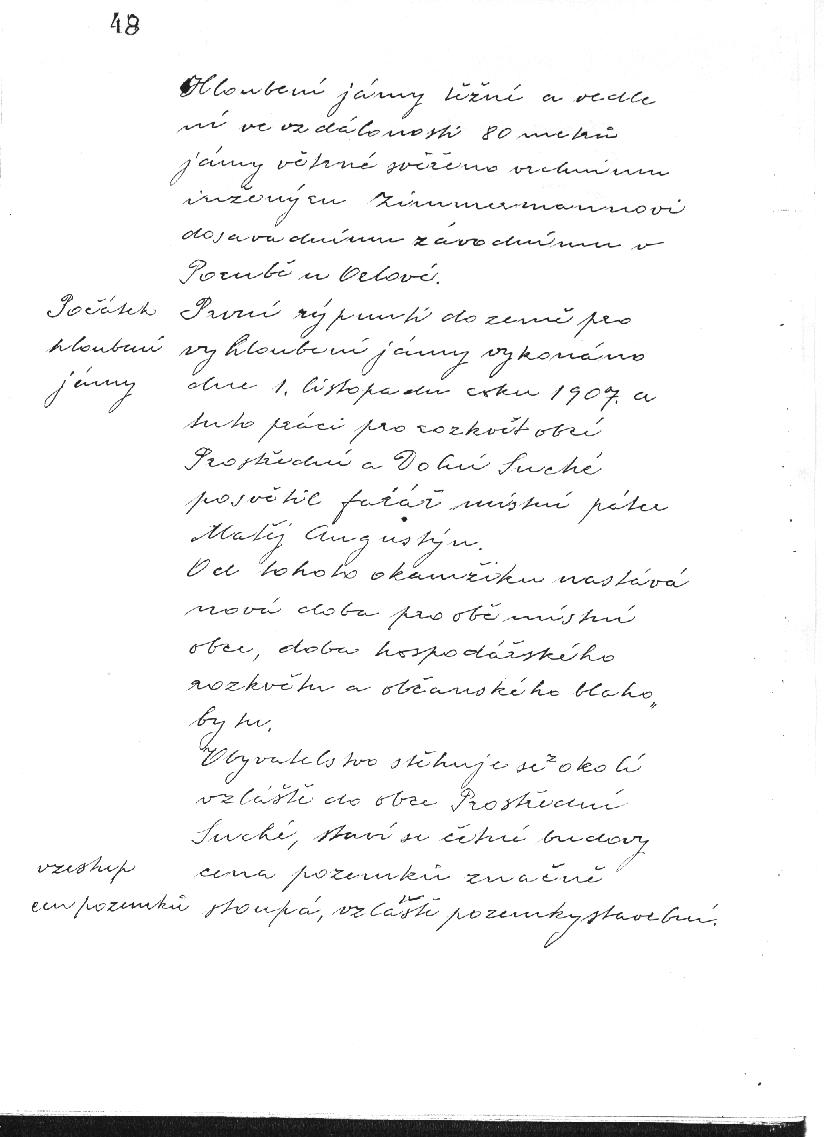 48
Hloubení jámy těžní a vedle
ní ve vzdálenosti 80 metrů
jámy větrné svěřeno vrchnímu
inženýru Zimmermannovi
dosavadnímu závodnímu v
Porubě u Orlové.
Počátek
hloubení
jámy
První rýpnutí do země pro
vyhloubení jámy vykonáno
dne 1. listopadu roku 1907. a
tuto práci pro rozkvět obcí
Prostřední a Dolní Suché
posvětil farář místní páter
Matěj Augustýn.
Od tohoto okamžiku nastává
nová doba pro obě místní
obce, doba hospodářského
rozkvětu a občanského blaho„
bytu.
Obyvatelstvo stěhuje se z okolí
vzláště do obce Prostřední
Suché, staví se četné budovy
vzestup
cen pozemků
cena pozemků značně
stoupá, vzláště pozemky stavební.